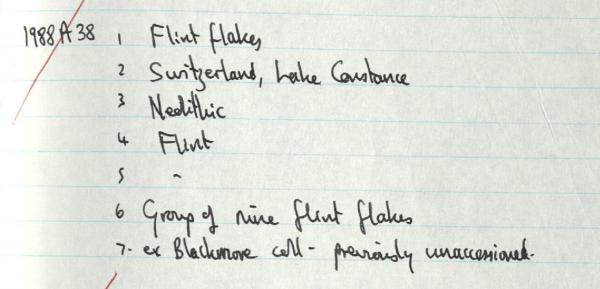 1988 A 38 1 Flint flakes
2 Switzerland, Lake Constance
3 Neolithic
4 Flint
5 -
6 Group of nine flint flakes
7. ex Blackmore coll - previously unaccessioned.